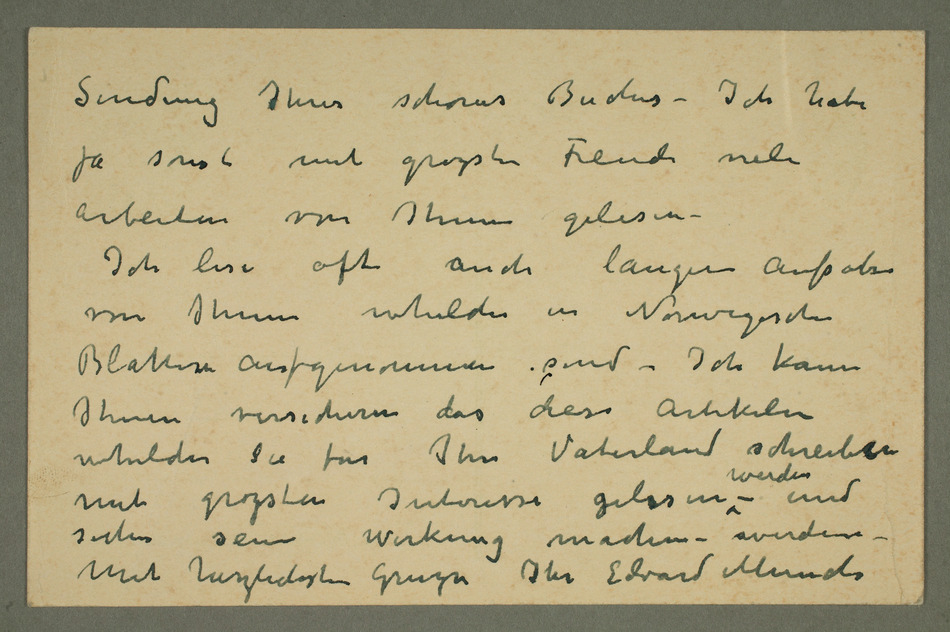 Sendung Ihres schönes Buches – Ich habe
ja sonst mit grozsten Freude viele
arbeiten von Ihnen gelesen –
Ich lese oft auch langere Aufsatse
von Ihnen whelche in Norwegische
Blättern aufgenommen sind – Ich kann
Ihnen versichern das diese Artikeln
whelche Sie für Ihre Vaterland schreiben
mit grozsten Interesse gelesen – werden und
sicher seine Wirkung machen – werden –
Mit herzlichsten Gruzse Ihr Edvard Munch